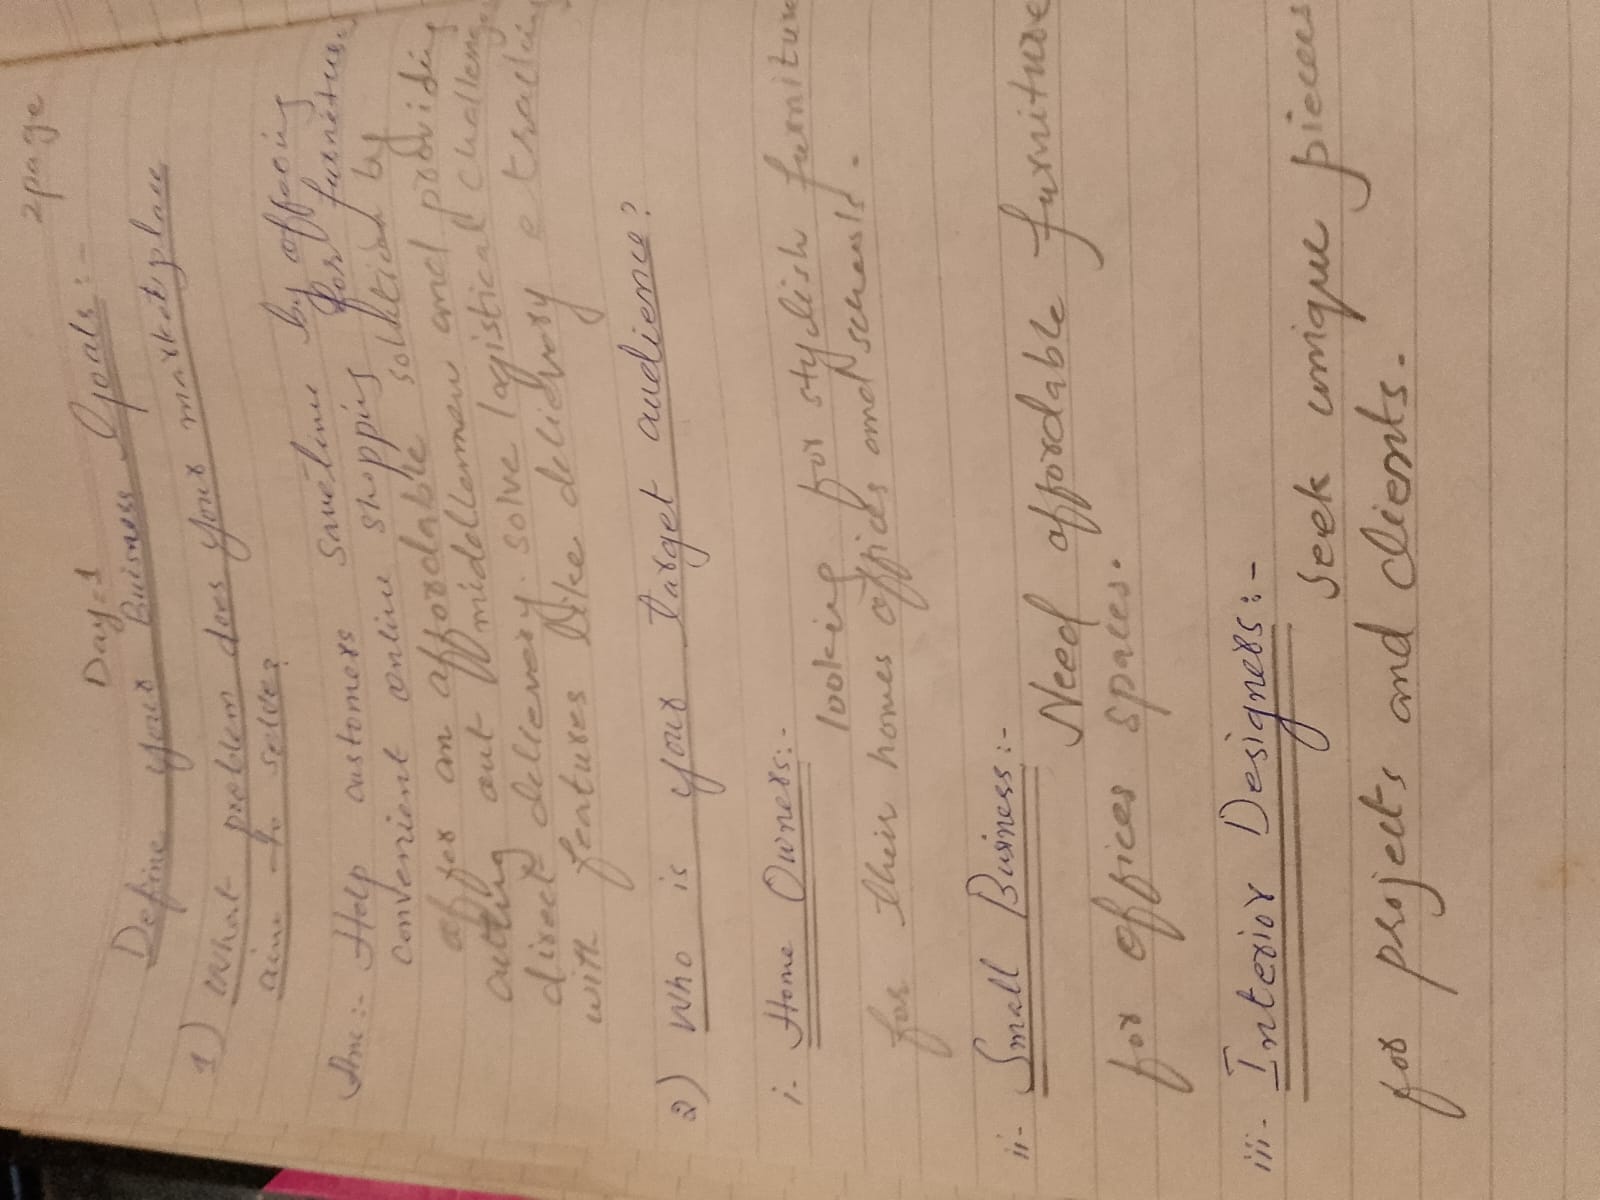 2page
Day=1
Define your Buisness Goals:-
1) What problem does your marketplace
aim to solve?
Ans:- Help customers save time by offering
convenient online shopping for furniture.
offer an affordable solution by
cutting out middlemen and providing
direct delievery. solve logistical challenges
with features like delidvery & tracking
2) Who is your target audience?
i- Home Owners:-
looking for stylish furniture
for their homes offices and
ii- Small Business:-
Need affordable furniture
for offices spaces.
iii- Interior Designers:-
Seek unique pieces
for projects and clients.